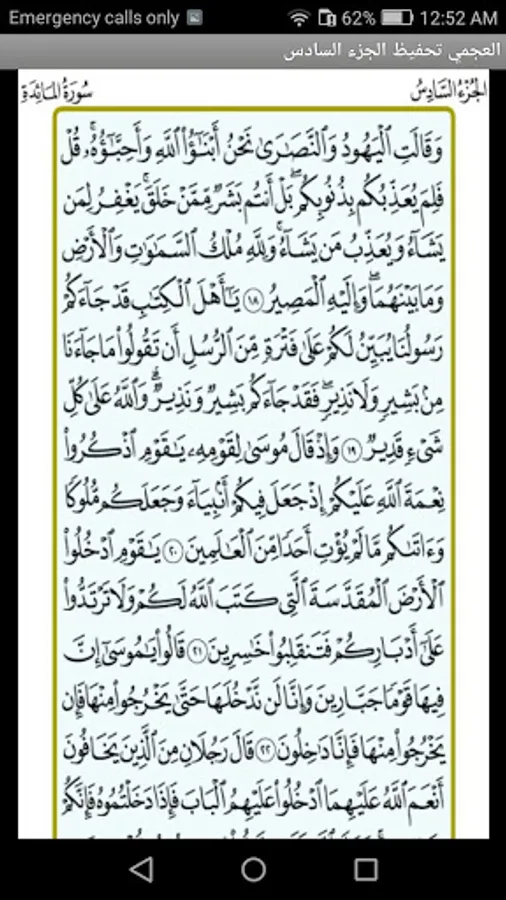 Emergency calls only 62% 12:52 AM
العجمي تحفيظ الجزء السادس
الجُزْءُ السَّادِسُ سُورَةُ المَائِدَةِ
وَقَالَتِ ٱلْيَهُودُ وَٱلنَّصَٰرَىٰ نَحْنُ أَبْنَٰٓؤُا۟ ٱللَّهِ وَأَحِبَّٰٓؤُهُۥ ۚ قُلْ
فَلِمَ يُعَذِّبُكُم بِذُنُوبِكُم ۖ بَلْ أَنتُم بَشَرٌ مِّمَّنْ خَلَقَ ۚ يَغْفِرُ لِمَن
يَشَآءُ وَيُعَذِّبُ مَن يَشَآءُ ۚ وَلِلَّهِ مُلْكُ ٱلسَّمَٰوَٰتِ وَٱلْأَرْضِ
وَمَا بَيْنَهُمَا ۖ وَإِلَيْهِ ٱلْمَصِيرُ ١٨ يَٰٓأَهْلَ ٱلْكِتَٰبِ قَدْ جَآءَكُمْ
رَسُولُنَا يُبَيِّنُ لَكُمْ عَلَىٰ فَتْرَةٍ مِّنَ ٱلرُّسُلِ أَن تَقُولُوا۟ مَا جَآءَنَا
مِنۢ بَشِيرٍ وَلَا نَذِيرٍ ۖ فَقَدْ جَآءَكُم بَشِيرٌ وَنَذِيرٌ ۗ وَٱللَّهُ عَلَىٰ كُلِّ
شَىْءٍ قَدِيرٌ ١٩ وَإِذْ قَالَ مُوسَىٰ لِقَوْمِهِۦ يَٰقَوْمِ ٱذْكُرُوا۟
نِعْمَةَ ٱللَّهِ عَلَيْكُمْ إِذْ جَعَلَ فِيكُمْ أَنۢبِيَآءَ وَجَعَلَكُم مُّلُوكًا
وَءَاتَىٰكُم مَّا لَمْ يُؤْتِ أَحَدًا مِّنَ ٱلْعَٰلَمِينَ ٢٠ يَٰقَوْمِ ٱدْخُلُوا۟
ٱلْأَرْضَ ٱلْمُقَدَّسَةَ ٱلَّتِى كَتَبَ ٱللَّهُ لَكُمْ وَلَا تَرْتَدُّوا۟
عَلَىٰٓ أَدْبَارِكُمْ فَتَنقَلِبُوا۟ خَٰسِرِينَ ٢١ قَالُوا۟ يَٰمُوسَىٰٓ إِنَّ
فِيهَا قَوْمًا جَبَّارِينَ وَإِنَّا لَن نَّدْخُلَهَا حَتَّىٰ يَخْرُجُوا۟ مِنْهَا فَإِن
يَخْرُجُوا۟ مِنْهَا فَإِنَّا دَٰخِلُونَ ٢٢ قَالَ رَجُلَانِ مِنَ ٱلَّذِينَ يَخَافُونَ
أَنْعَمَ ٱللَّهُ عَلَيْهِمَا ٱدْخُلُوا۟ عَلَيْهِمُ ٱلْبَابَ فَإِذَا دَخَلْتُمُوهُ فَإِنَّكُمْ